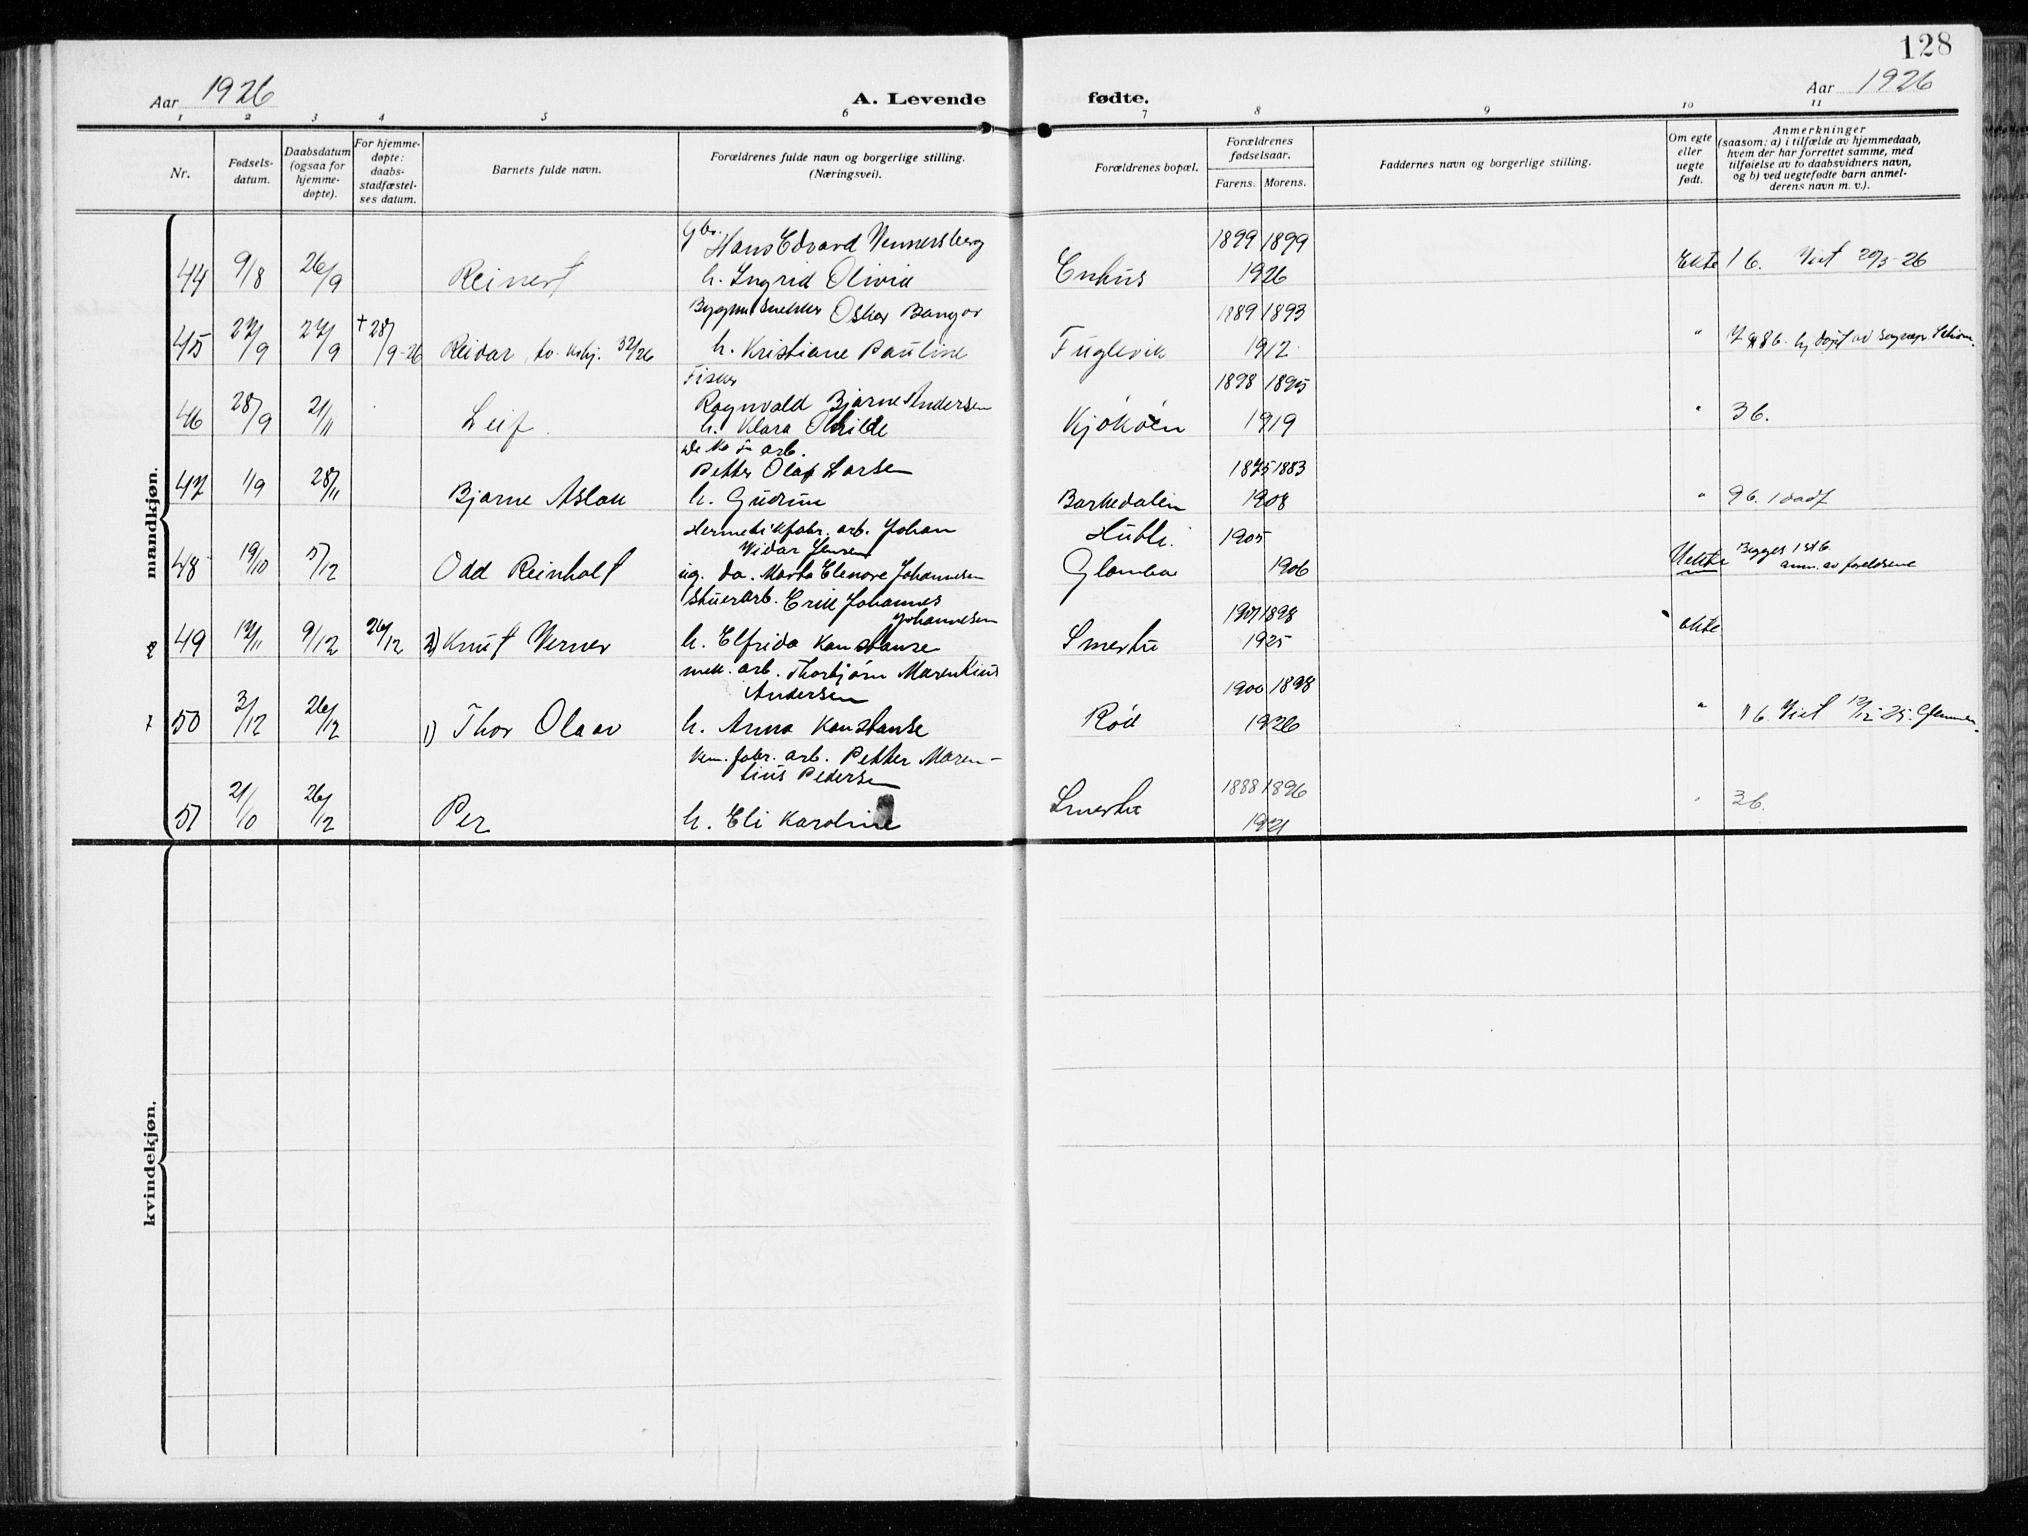 128
Aar 1926
A. Levende fødte.
Aar 1926
1 2 3 4 5 6 7 8 9 10 11
Nr.
Fødsels-
datum.
Daabsdatum
(ogsaa for
hjemme-
døpte).
For hjemme-
døpte:
daabs-
stadfæstel-
ses datum.
Barnets fulde navn.
Forældrenes fulde navn og borgerlige stilling.
(Næringsvei).
Forældrenes bopæl.
Forældrenes
fødselsaar.
Farens. Morens.
Faddernes navn og borgerlige stilling.
Om egte
eller
uegte
født.
Anmerkninger
(saasom: a) i tilfælde av hjemmedaab,
hvem der har forrettet samme, med
tilføielse av to daabsvidners navn,
og b) ved uegtefødte barn anmel-
derens navn m. v.).
mandkjøn.
Gbr.
Hans Edvard Vennersberg 1899 1899
44 9/8 26/9 Reinert h. Ingrid Olivia Enhus 1926 Ekte 1 b. Viet 20/3-26
Oskar Bangor 1889 1893
45 27/9 27/9 † 28/9-26 Reidar, h. Kristiane Pauline Fuglevik 1912 "
Fisker
Ragnvald Bjarne Andersen 1898 1895
46 28/9 21/11 Leif. h. Klara Othilde Kjøkøen 1919 " 3 b.
arb.
Petter Olaf Larsen 1875 1883
47 1/9 28/11 Bjarne Aslak h. Gudrun Barkedalen 1908 " 9 b. 1 dødf
Hermetikfabr. arb. Johan
Vidar Jensen 1905
48 19/10 5/12 Odd Reinholt ug. da. Marta Elenore Johannesen Glombo 1906 Uekte Begges 1st b.
anm. av foreldrene
Stuerarb. Erik Johannes
Johannesen 1901 1898
49 12/11 9/12 26/12 2) Knut Verner h. Elfrida Konstanse Smertu 1925 ekte
mek. arb. Thorbjørn Marentius
Andersen 1900 1898
x 50 3/12 26/12 1) Thor Olaav h. Anna Konstanse Rød 1926 "
Kem. fabr. arb. Petter Maren-
tius Pedersen 1888 1896
51 21/10 26/12 Per h. Eli Karoline Smertu 1921 " 3 b.
kvindekjøn.